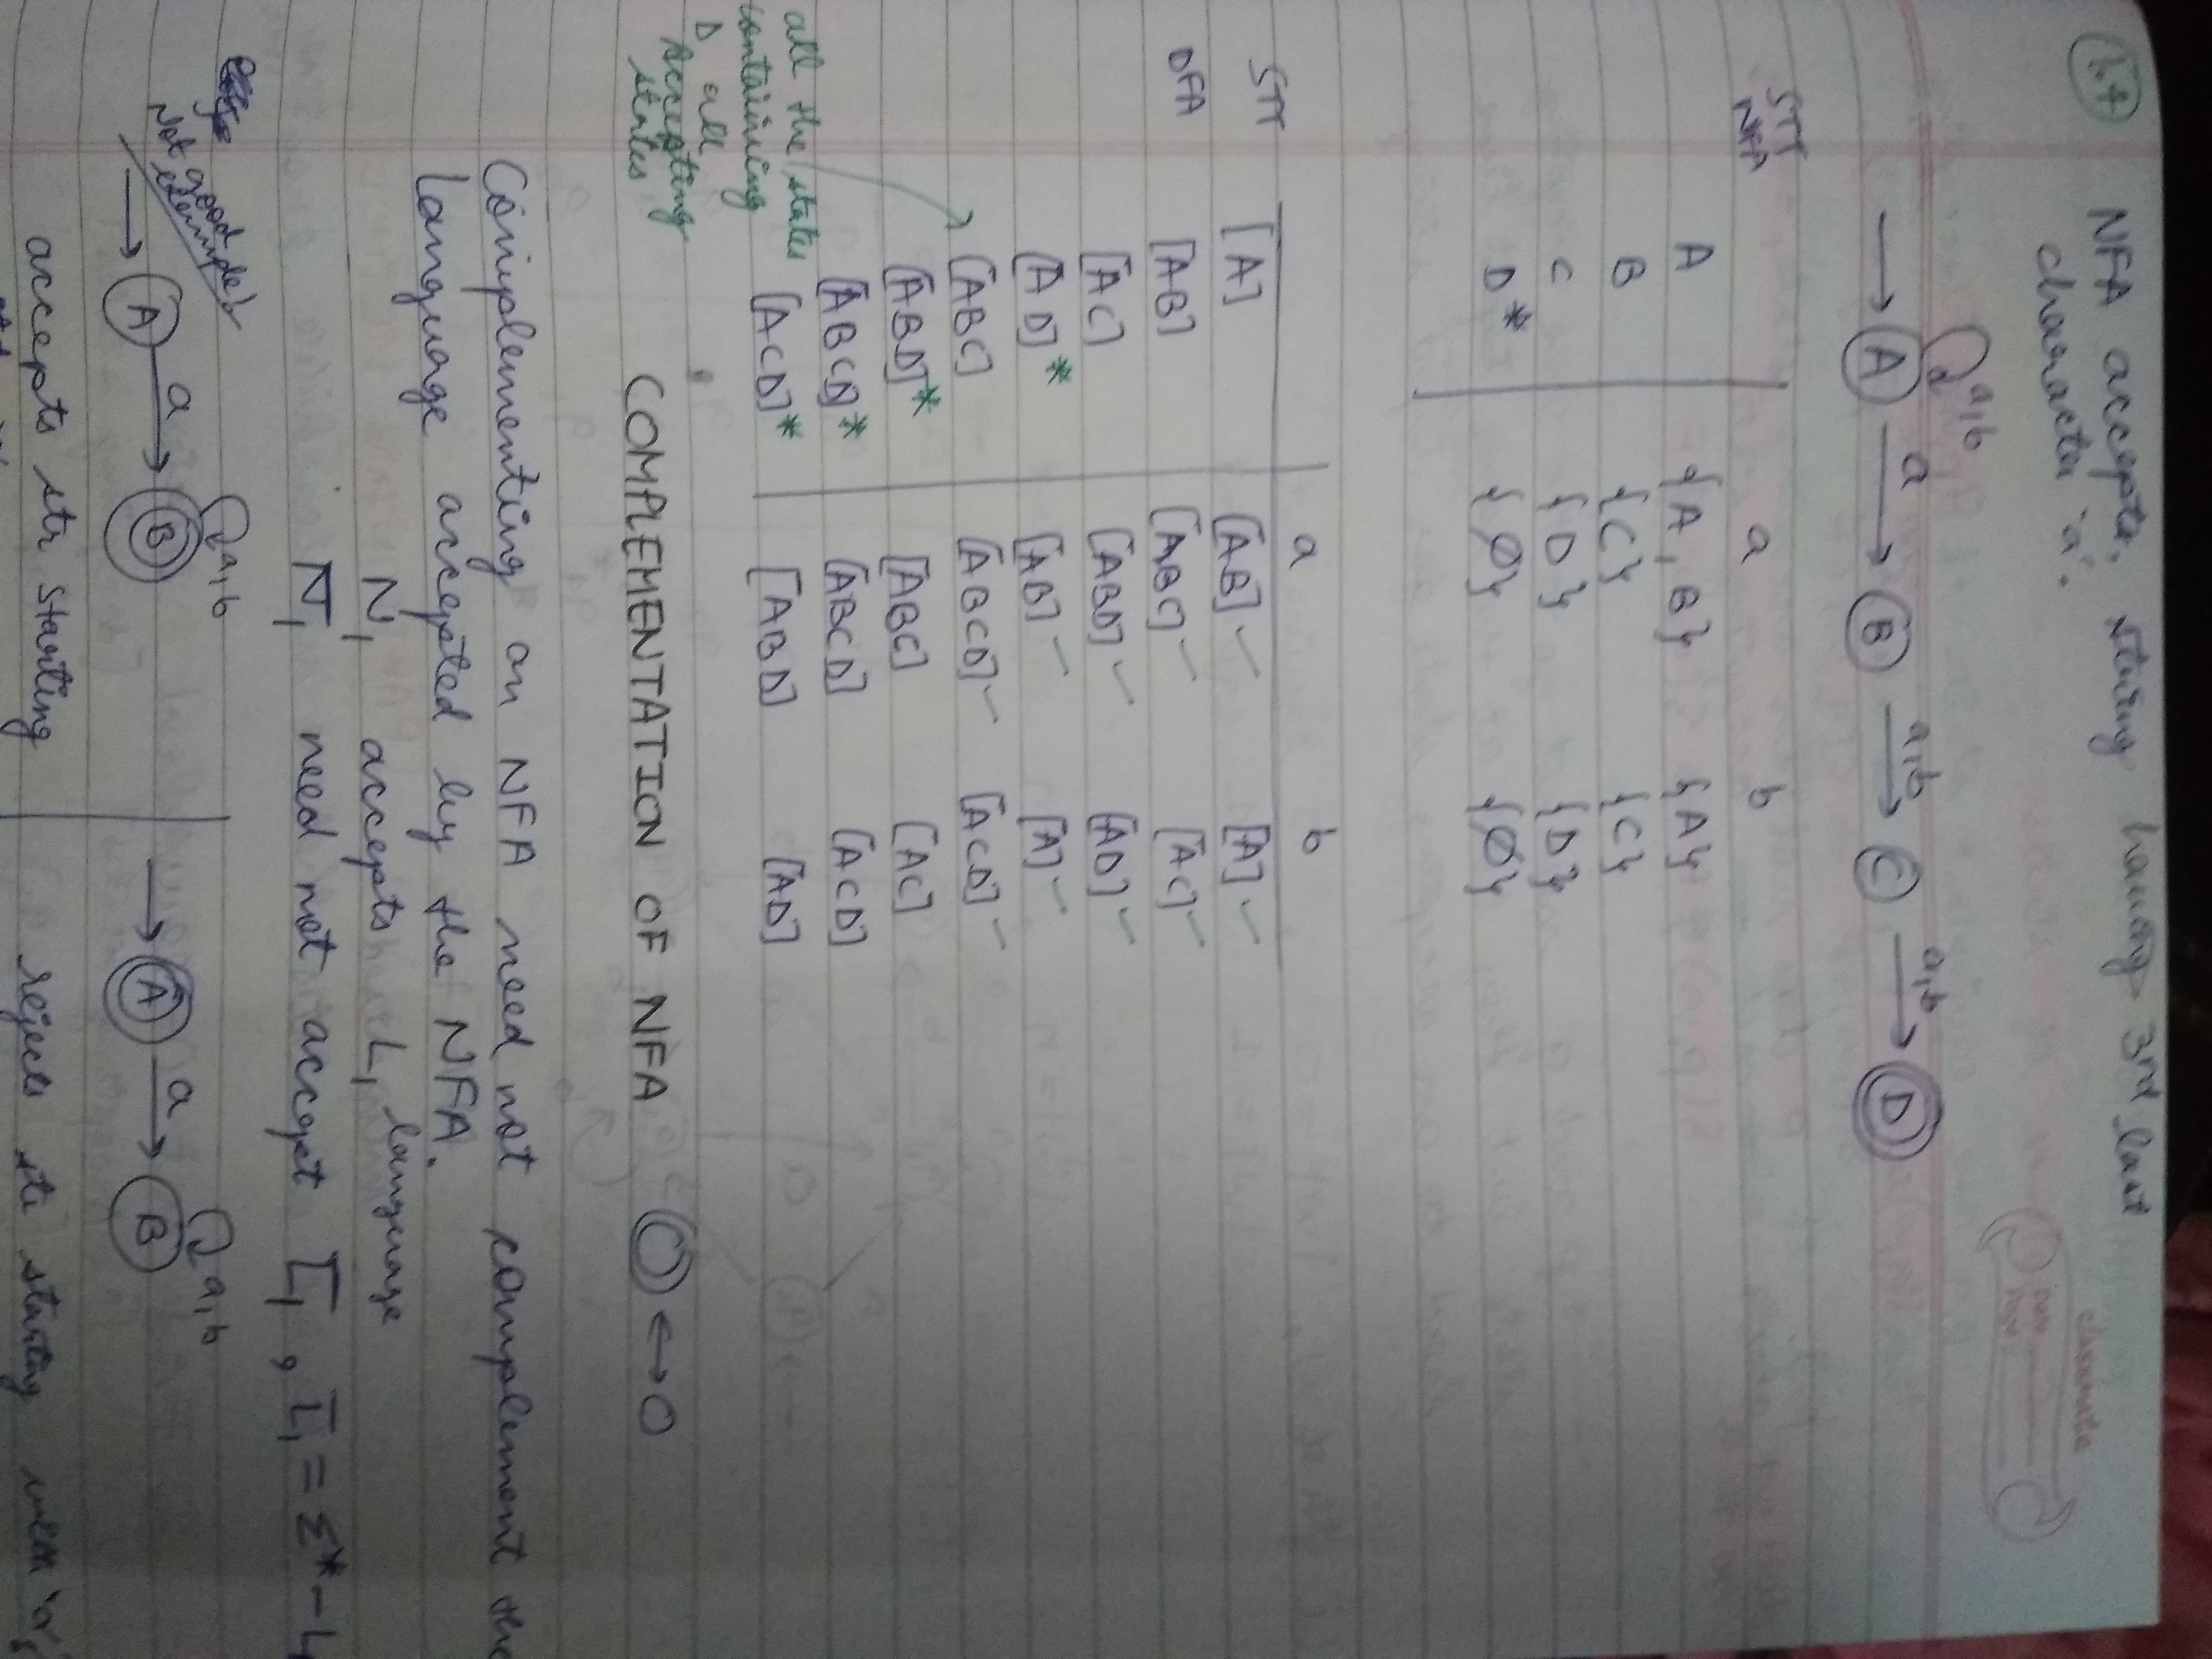 classmate
Date
Page
NFA accepts, string having 3rd last
character 'a'.
a,b
→ A a B a,b C a,b D
STT
NFA
a b
A {A, B} {A}
B {C} {C}
C {D} {D}
D* {Ø} {Ø}
STT
DFA
a b
[A] [AB] ✓ [A] ✓
[AB] [ABC] ✓ [AC] ✓
[AC] [ABD] ✓ [AD] ✓
[AD]* [AB] ✓ [A] ✓
[ABC] [ABCD] ✓ [ACD] ✓
[ABD]* [ABC] [AC]
[ABCD]* [ABCD] [ACD]
[ACD]* [ABD] [AD]
all the states
containing
D all
Accepting
states
COMPLEMENTATION OF NFA ◎ ↔ O
Complementing an NFA need not complement the
language accepted by the NFA.
N₁ accepts L₁ language
N̅₁ need not accept L̅₁, L̅₁ = Σ* - L₁
Not good
example
→ A a B a,b → A a B a,b
accepts str starting rejects str starting with 'a'